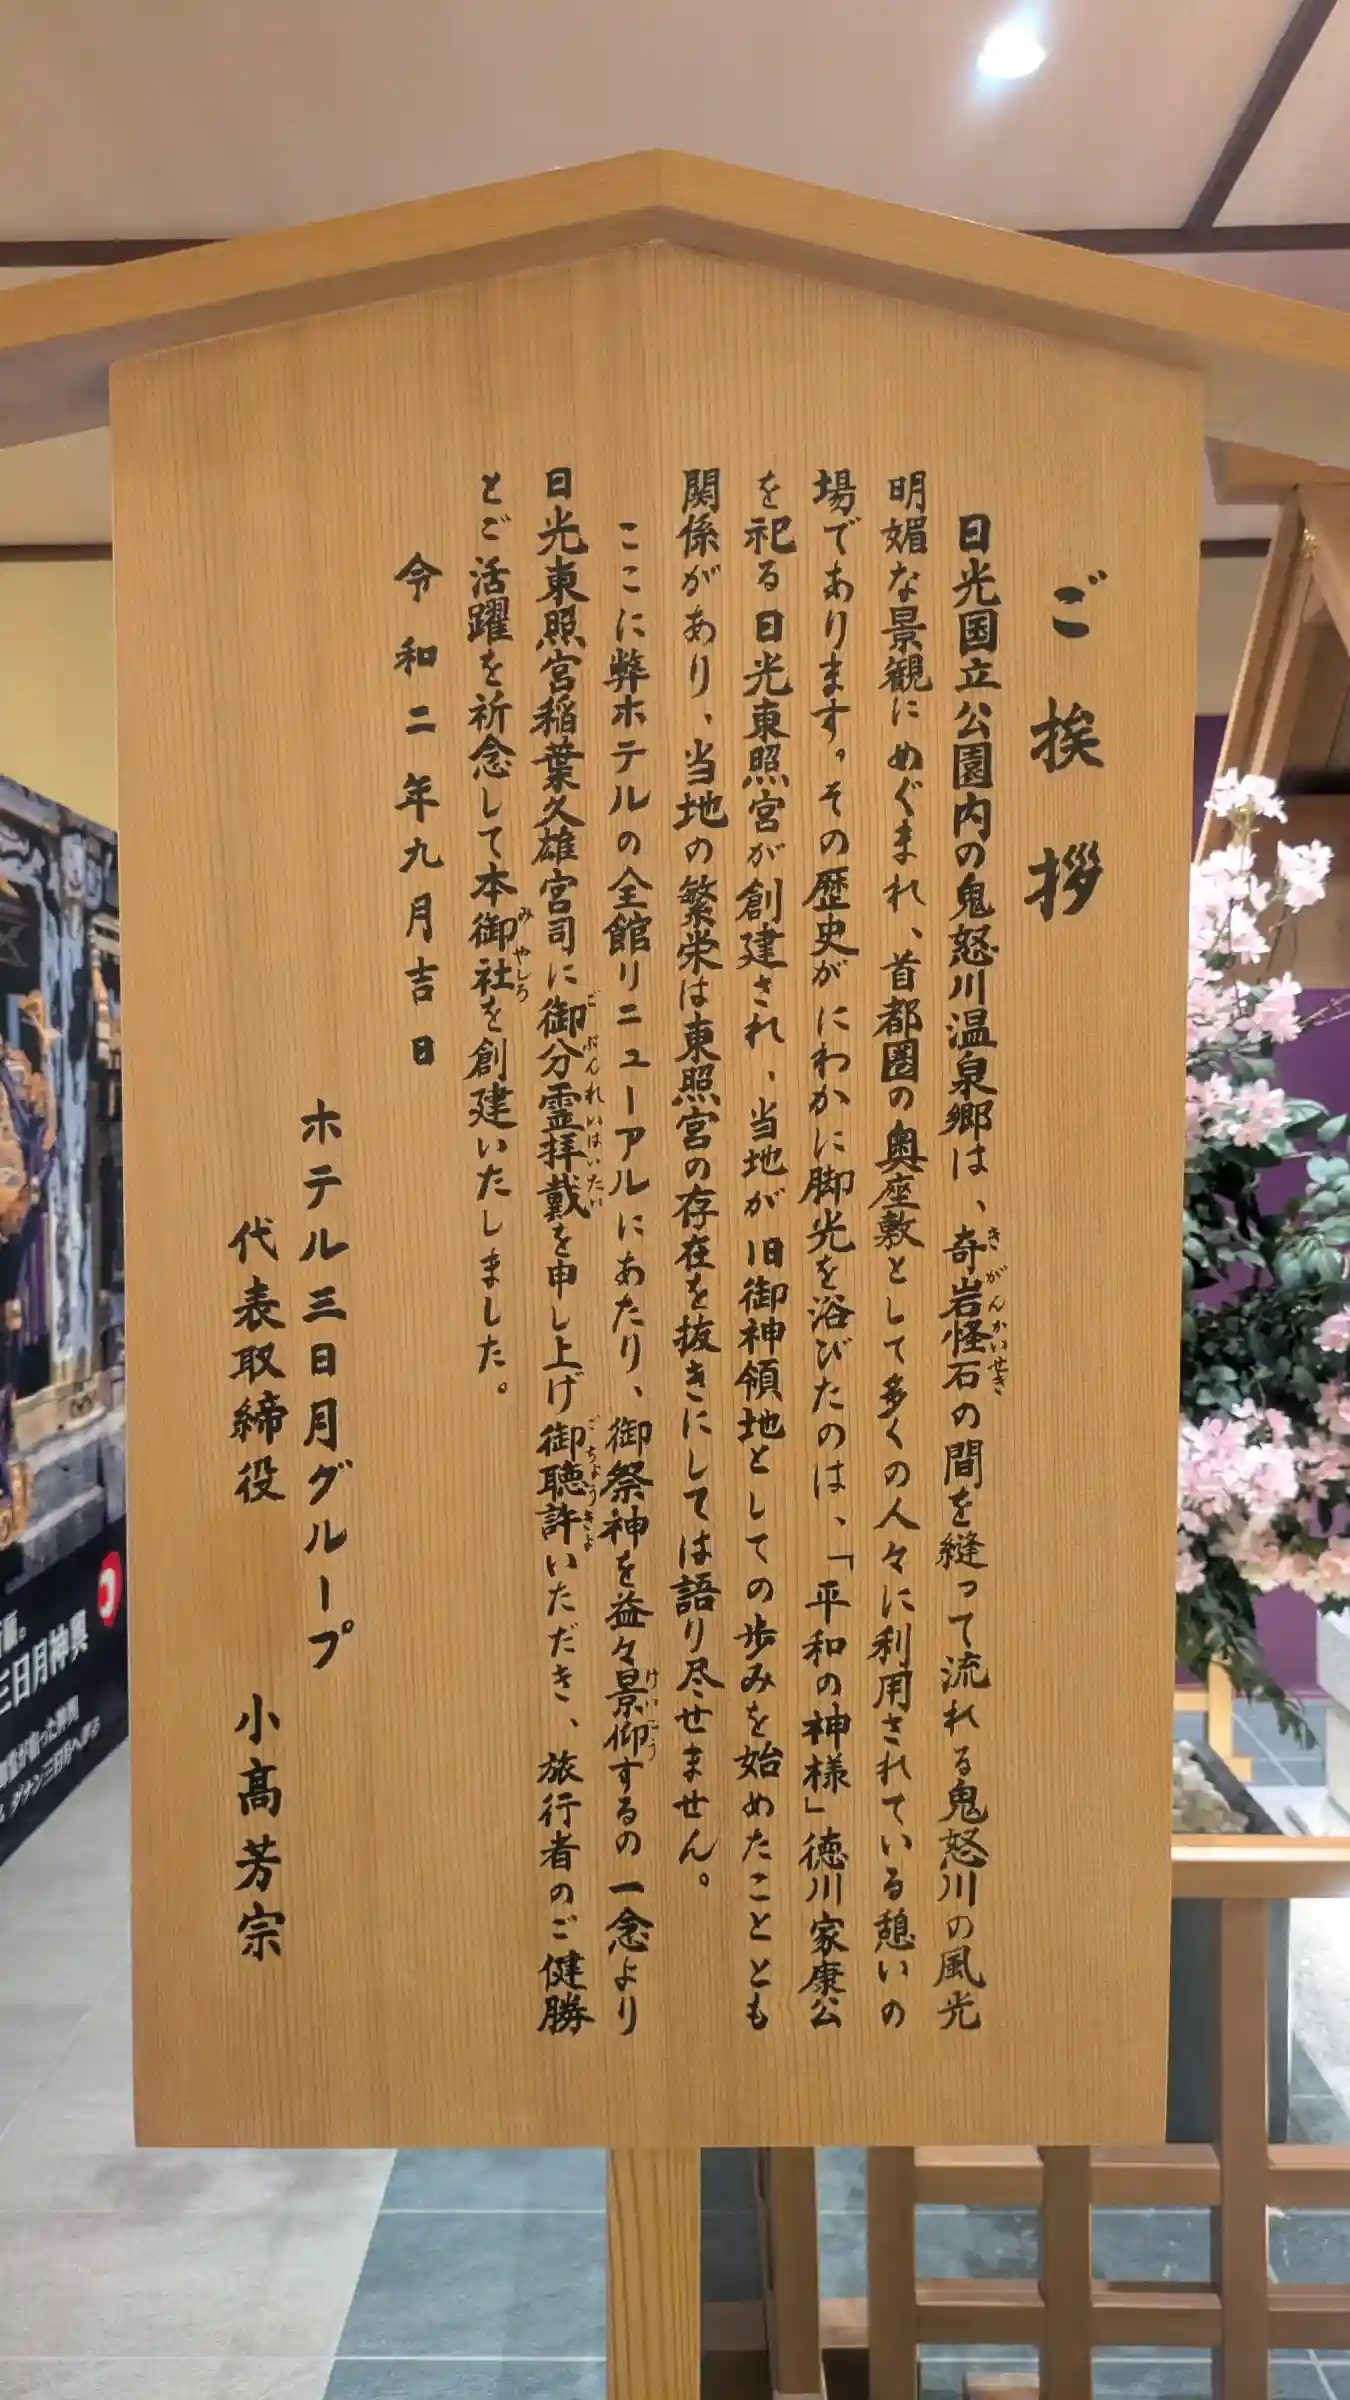 ご挨拶
日光国立公園内の鬼怒川温泉郷は、奇岩怪石の間を縫って流れる鬼怒川の風光
きがんかいせき
明媚な景観にめぐまれ、首都圏の奥座敷として多くの人々に利用されている憩いの
場であります。その歴史がにわかに脚光を浴びたのは、「平和の神様」徳川家康公
を祀る日光東照宮が創建され、当地が旧御神領地としての歩みを始めたこととも
関係があり、当地の繁栄は東照宮の存在を抜きにしては語り尽せません。
ここに弊ホテルの全館リニューアルにあたり、御祭神を益々景仰するの一念より
けいこう
日光東照宮稲葉久雄宮司に御分霊拝戴を申し上げ御聴許いただき、旅行者のご健勝
ごぶんれいはいたい
ごちょうきょ
とご活躍を祈念して本御社を創建いたしました。
みやしろ
令和二年九月吉日
ホテル三日月グループ
代表取締役 小高芳宗
三日月神輿